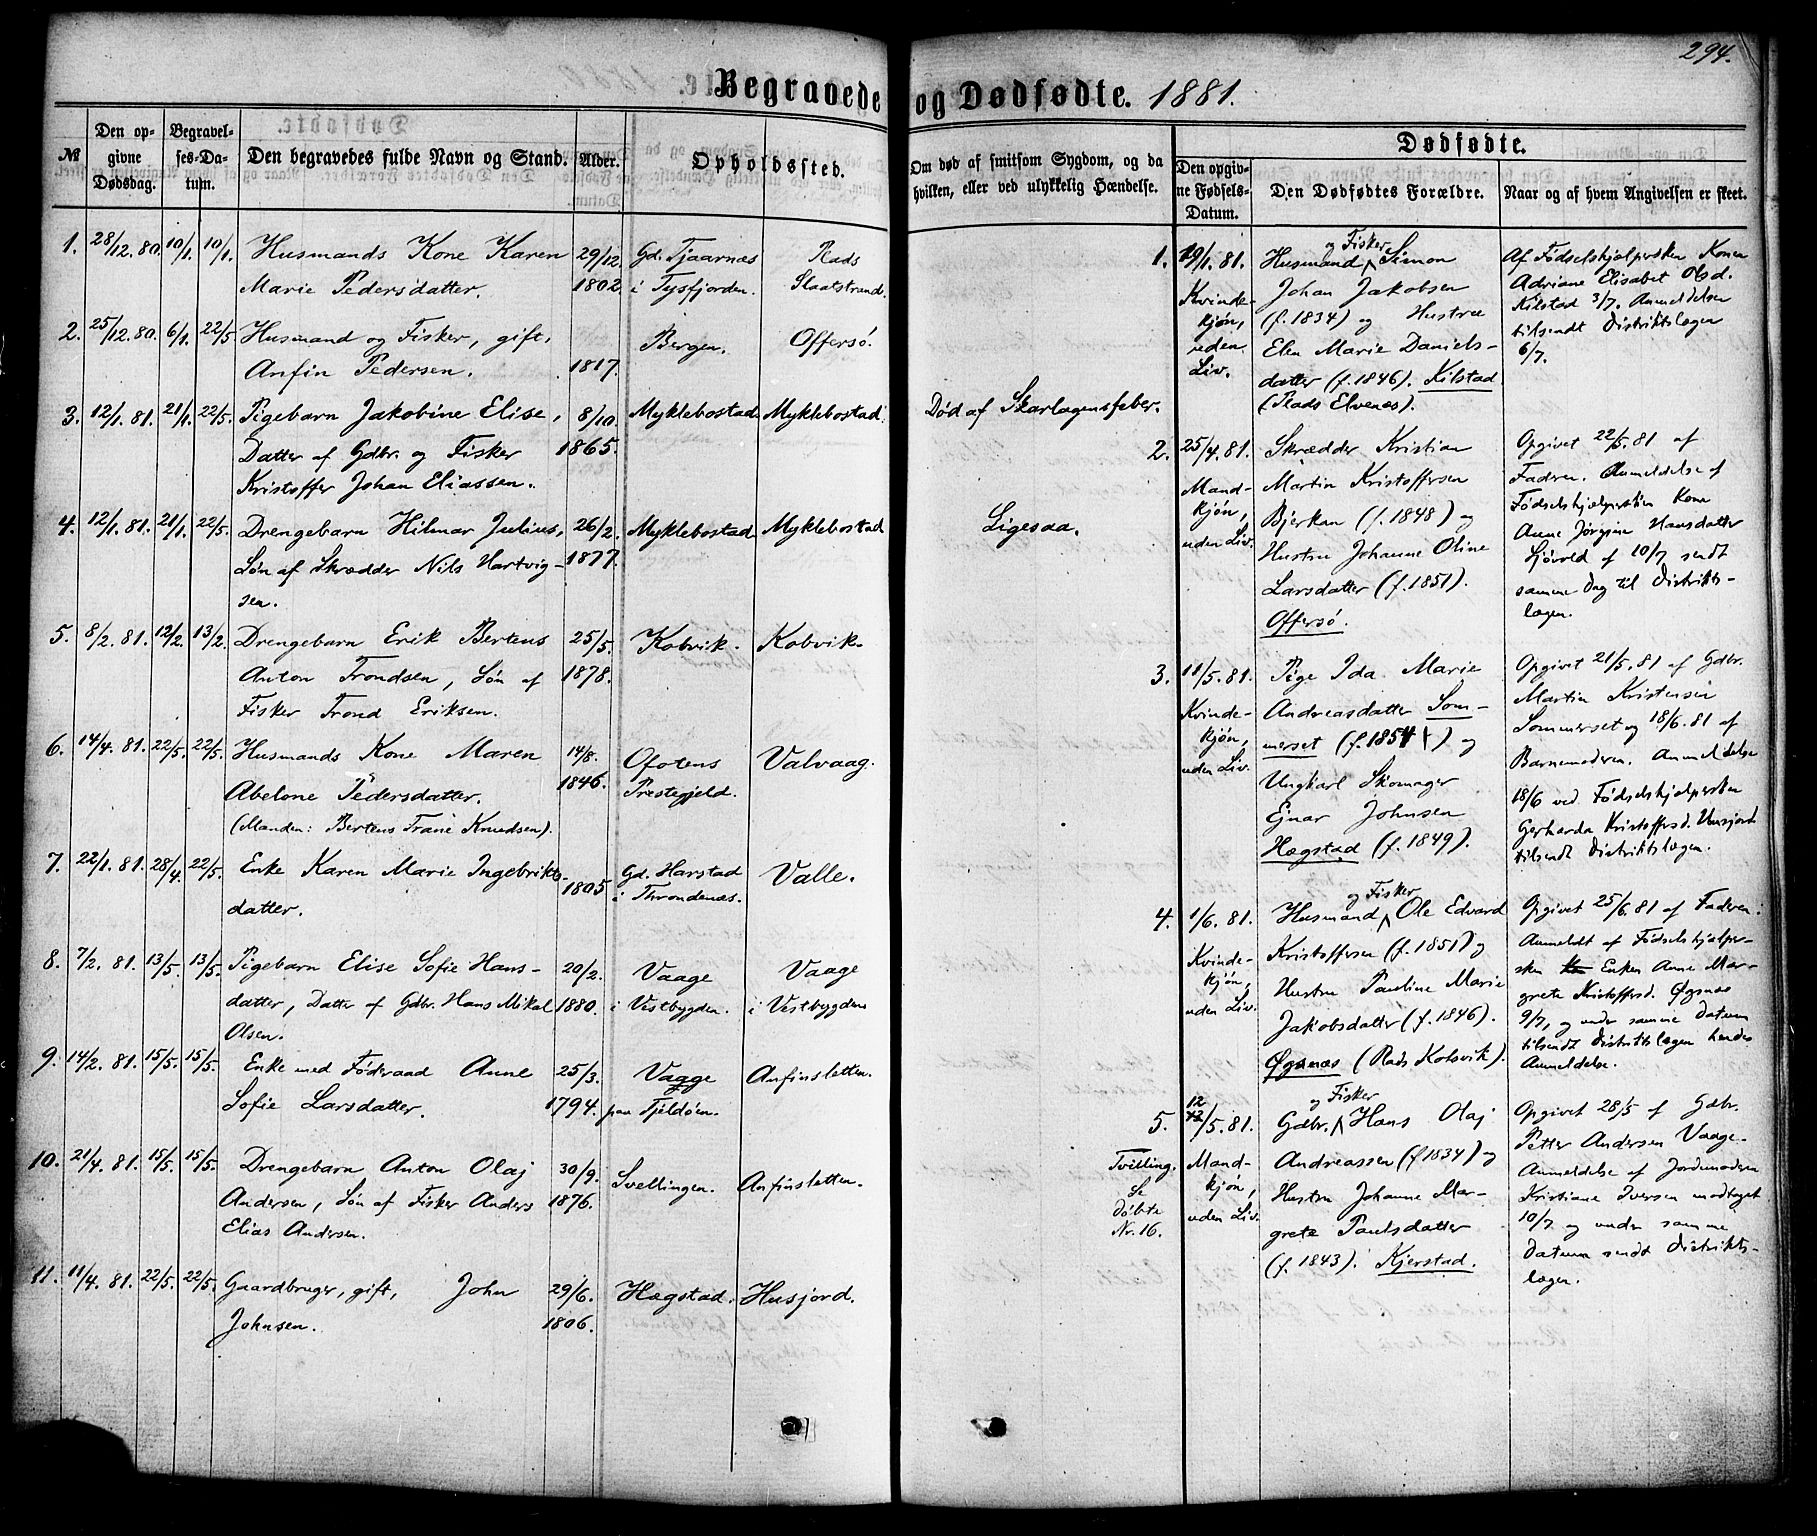 294.
Begravede og Dødfødte. 1881.
№
Den opgivne Dødsdag.
Begravelses-Datum.
Den begravedes fulde Navn og Stand.
Alder.
Opholdssted.
Om død af smitsom Sygdom, og da
hvilken, eller ved ulykkelig Hændelse.
Dødfødte.
Den opgivne Fødsels-Datum.
Den Dødfødtes Forældre.
Naar og af hvem Angivelsen er skeet.
1. 28/12. 80. 10/1. 10/1. Husmands Kone Karen 29/12. Gd. Tjaarnæs Plads
Marie Pedersdatter. 1802. i Tysfjorden. Slaatstrand.
2. 25/12. 80. 6/1. 22/5. Husmand og Fisker, gift, Bergen. Offersø.
Anfin Pedersen. 1817.
3. 12/1. 81. 21/1. 22/5. Pigebarn Jakobine Elise, 8/10. Myklebostad Myklebostad. Død af Skarlagensfeber.
Datter af Gdbr. og Fisker 1865.
Kristoffer Johan Eliassen.
4. 12/1. 81. 21/1. 22/5. Drengebarn Hilmar Julius, 26/2. Myklebostad Myklebostad Ligesaa.
Søn af Skrædder Nils Hartvig- 1877.
sen.
5. 8/2. 81. 12/2. 13/2. Drengebarn Erik Bertens 25/5. Kobvik. Kobvik.
Anton Trondsen, Søn af 1878.
Fisker Trond Eriksen.
6. 14/4. 81. 22/5. 22/5. Husmands Kone Maren 14/8. Ofotens Valvaag.
Abelone Pedersdatter. 1846. Prestegjeld.
(Manden: Bertens Knudsen).
7. 22/1. 81. 28/4. 22/5. Enke Karen Marie Ingebrikts- 1805. Gd. Harstad Valle.
datter. i Throndenæs.
8. 7/2. 81. 13/5. 13/5. Pigebarn Elise Sofie Hans- 20/2. Vaage Vaage
datter, Datter af Gdbr. Hans Mikal 1880. i Vestbygden. i Vestbygden
Olsen.
9. 14/2. 81. 15/5. 15/5. Enke med Føderaad Anne 25/3. Vagge Anfinsletten.
Sofie Larsdatter. 1794. paa Tjeldøen.
10. 21/4. 81. 15/5. 15/5. Drengebarn Anton Olaj 30/9. Svellingen. Anfinsletten.
Andersen, Søn af Fisker Anders 1876.
Elias Andersen.
11. 11/4. 81. 22/5. 22/5. Gaardbruger, gift, John 29/6. Hægstad. Husjord.
Johnsen. 1806.
1. 19/1. 81.
Kvinde-
kjøn,
uden
Liv.
og Fisker
Husmand Simon
Johan Jakobsen
(f. 1834) og Hustru
Elen Marie Daniels-
datter (f. 1846). Kilstad
(Plads Elvenæs).
Af Fødselshjælpersken Konen
Adriane Elisabet Olsd.
Kilstad 3/7. Anmeldelsen
tilsendt Distriktslægen
6/7.
2. 25/4. 81.
Mand-
kjøn,
uden Liv.
Skrædder Kristian
Martin Kristoffersen
Bjerkan (f. 1848) og
Hustru Johanne Oline
Larsdatter (f. 1851).
Offersø.
Opgivet 22/5. 81 af
Faderen. Anmeldelse af
Fødselshjælpersken Kone
Anne Jørgine Hansdatter
af 10/7 sendt
samme Dag til Distrikts-
lægen.
3. 11/5. 81.
Kvinde-
kjøn,
uden Liv.
Pige Ida Marie
Andreasdatter Som-
merset (f. 1854) og
Ungkarl Skomager
Ejnar Johnsen
Hægstad (f. 1849).
Opgivet 21/5. 81 af Gdbr.
Martin Kristensen
Sommerset og 18/6. 81 af
Barnemoderen. Anmeldelse
18/6 ved Fødselshjælpersken
Gerharda Kristoffersd. Husjord
tilsendt Distriktslægen.
4. 1/6. 81.
Kvinde-
kjøn,
uden Liv.
og Fisker
Husmand Ole Edvard
Kristoffersen (f. 1851) og
Hustru Pauline Marie
Jakobsdatter (f. 1846).
Øgsnæs (Plads Kobsvik).
Opgivet 25/6. 81 af Faderen:
Anmeldt af Fødselshjælper-
sken Enken Anne Mar-
grete Kristoffersd. Øgsnæs
9/7, og under samme Datum
tilsendt Distriktslægen hendes
Anmeldelse.
5. 12/5. 81.
Tvilling.
Se
døbte
Nr. 16.
Mand-
kjøn,
uden Liv.
og Fisker
Gdbr. Hans Olaj
Andreassen (f 1834) og
Hustru Johanne Mar-
grete Paulsdatter
(f. 1843). Kjerstad.
Opgivet 28/5 af Gdbr.
Petter Andersen Vaage.
Anmeldelse af Jordemoderen
Kristiane Iversen modtaget
10/7 og under samme
Datum sendt Distrikts-
lægen.